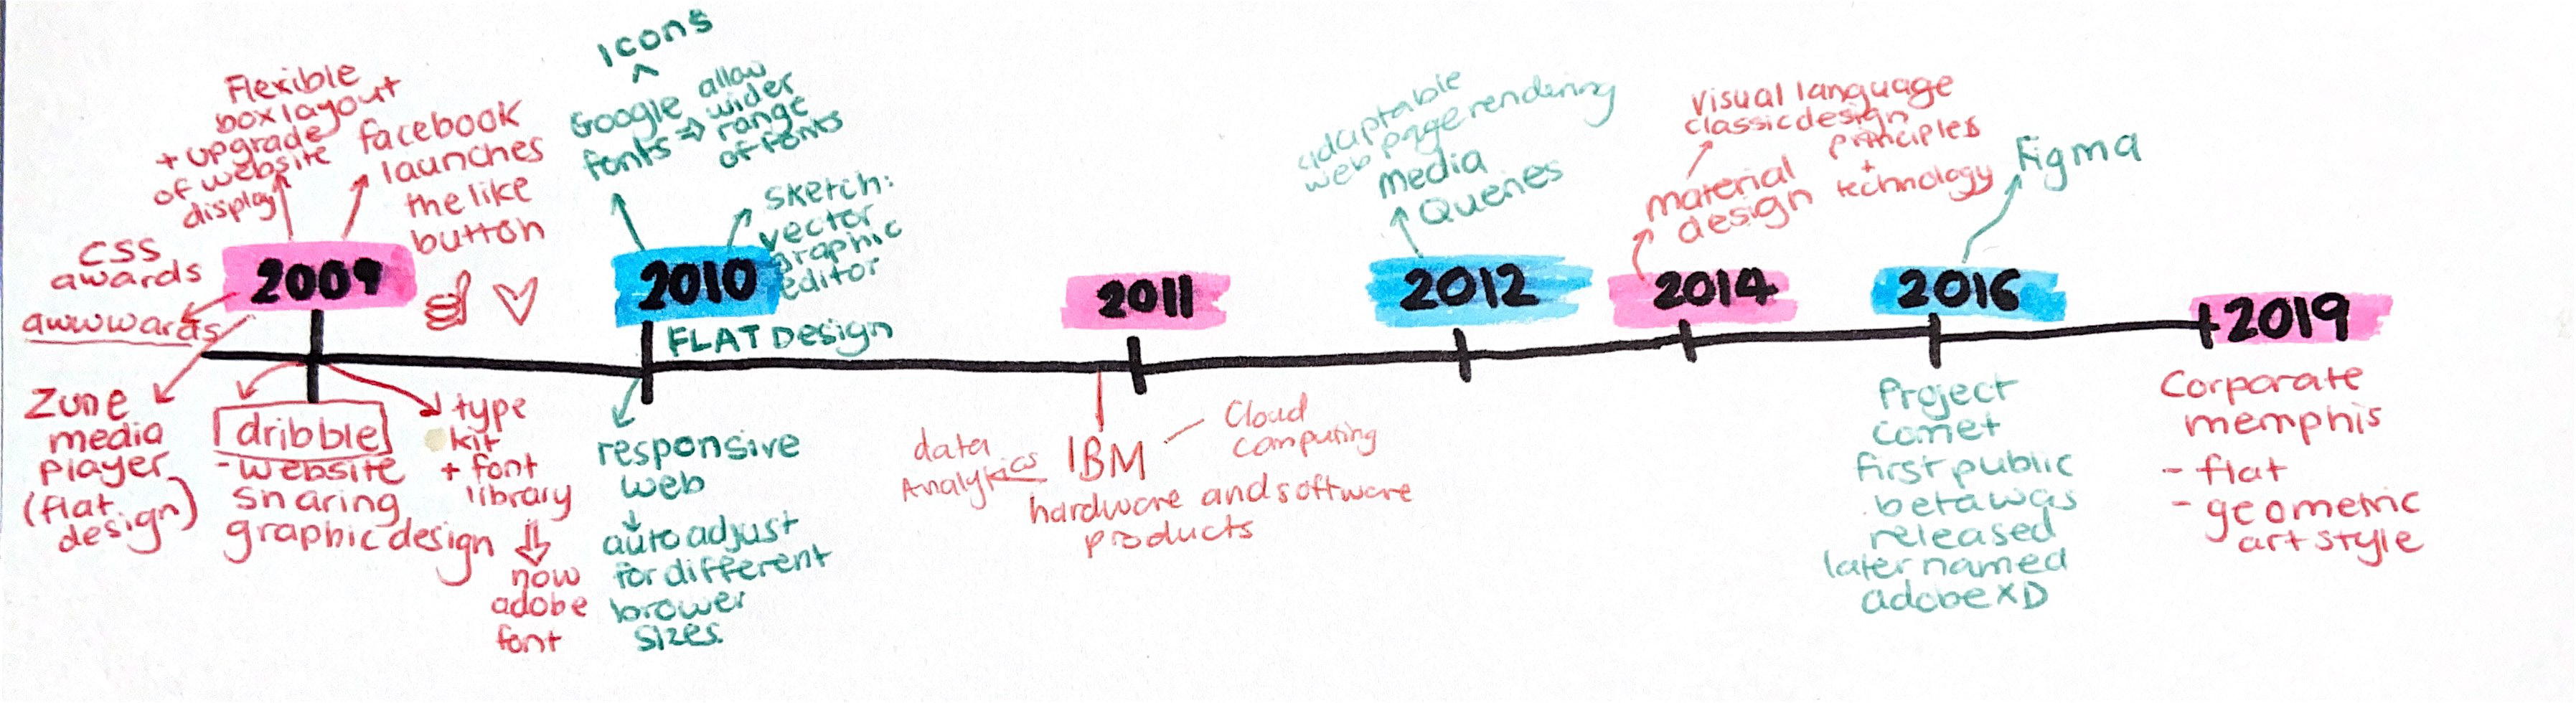 Flexible
box layout
+ upgrade
of website
display
facebook
launches
the like
button
CSS
awards
awwwards
2009
Zune
media
player
(flat
design)
dribble
- website
snaring
graphic design
type
kit
+ font
library
now
adobe
font
Icons
Google
fonts ⇒
allow
wider
range
of fonts
Sketch:
vector
graphic
editor
2010
FLAT Design
responsive
web
auto adjust
for different
brower
sizes.
2011
data
Analytics
IBM
Cloud
computing
hardware and software
products
adaptable
web page rendering
media
Queries
2012
Visual language
classic design
principles
+
technology
material
design
2014
Figma
2016
Project
Comet
first public
beta was
released
later named
adobe XD
2019
Corporate
memphis
- flat
- geometric
art style